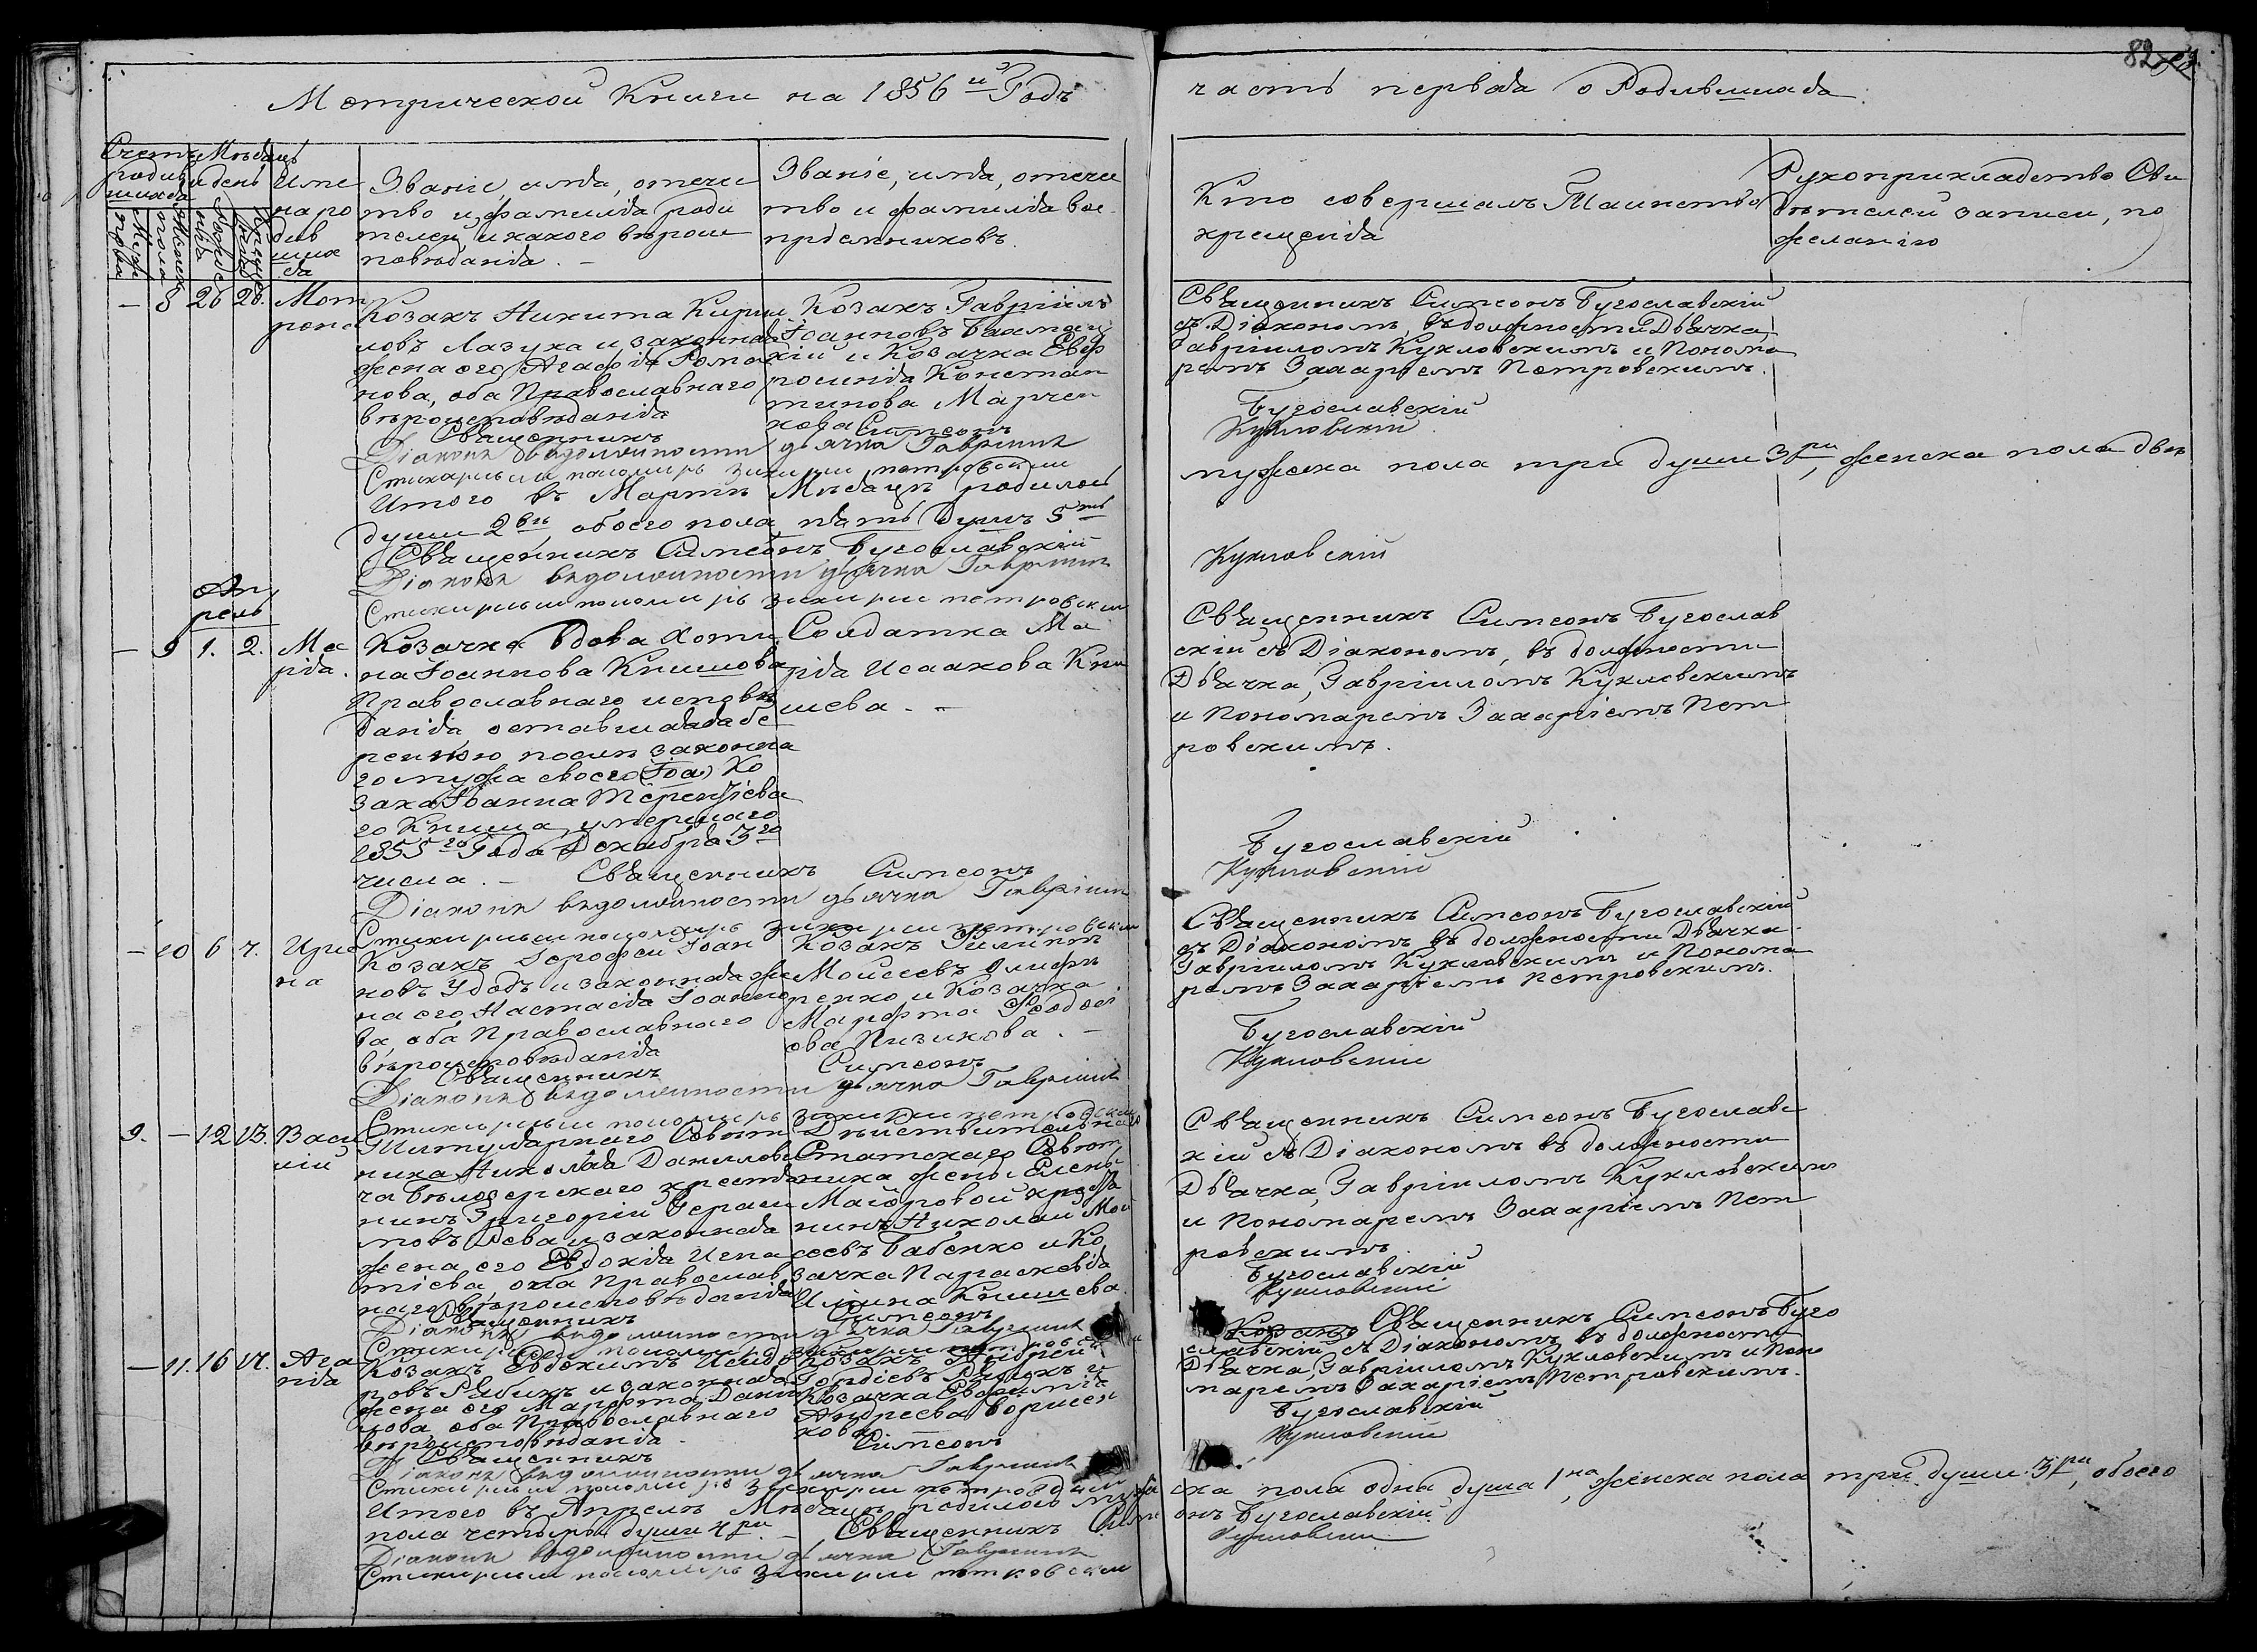 82
Метрической Книги на 1856й Годъ
часть первая о Родившихся
Счетъ родив шихся
Мѣсяцъ и день
Име на ро див ших ся
Званіе, имя, отече
ство и фамилія роди
телей, и какого вѣроис
повѣданія. –
Званіе, имя, отече
ство и фамилія вос
приемниковъ.
Кто совершалъ Таинство
крещенія
Рукоприкладство Сви
дѣтелей записи, по
желанію
Муж. пола
Женск. пола
Рожде нія
Креще нія
– 8 26 28. Мот
рона
Козакъ Никита Кири
ловъ Лазука и законная
жена его Агафія Рома
нова, оба Православнаго
вѣроисповѣданія
Козакъ Гавріилъ
Іоанновъ
и Козачка Евф
росинія Констан
тинова Марчен
кова
Священникъ Симеонъ Бугославскій
съ Діакономъ, въ должности Дьячка
Гавріиломъ Кукловскимъ и Понома
ремъ Захаріемъ Петровскимъ.
Священникъ Симеонъ Бугославскій
Діаконъ въ должности дьячка Гавріилъ Кукловскій
Стихарный пономарь Захарій Петровскій
Итого въ Мартѣ Мѣсяцѣ родилось мужеска пола три души 3ри, женска пола двѣ
души 2вѣ, обоего пола пять душъ 5ть
Священникъ Симеонъ Бугославскій
Діаконъ въ должности дьячка Гавріилъ Кукловскій
Стихарный пономарь Захарій Петровскій
Ап
рель
– 9 1. 2. Ма
рія.
Козачка вдова Хоти
на Іоаннова Книшова
Православнаго исповѣ
данія, оставшаяся бе
ременною послѣ законна
го мужа своего (Іоа) Ко
зака Іоанна Терентіева
го Книша, умершаго
1855го Года Декабря 3го
числа. –
Солдатка Ма
рія Исаакова Кни
шева. –
Священникъ Симеонъ Бугослав
скій съ Діакономъ, въ должности
Дьячка, Гавріиломъ Кукловскимъ
и Пономаремъ Захаріемъ Пет
ровскимъ.
Священникъ Симеонъ Бугославскій
Діаконъ въ должности дьячка Гавріилъ Кукловскій
Стихарный пономарь Захарій Петровскій
– 10 6 7. Ири
на
Козакъ Дорофей Іоан
новъ Удодъ и законная же
на его Настасія Іоанно
ва, оба Православнаго
вѣроисповѣданія
Козакъ Филиппъ
Моисеевъ Олифи
ренко и Козачка
Марфа Феодосі
ова Пизикова. –
Священникъ Симеонъ Бугославскій
съ Діакономъ въ должности Дьячка
Гавріиломъ Кукловскимъ и Понома
ремъ Захаріемъ Петровскимъ.
Священникъ Симеонъ Бугославскій
Діаконъ въ должности дьячка Гавріилъ Кукловскій
Стихарный пономарь Захарій Петровскій
9. – 12 13. Васи
лій
Титулярнаго Совѣт
ника Николая Данилови
ча Бѣлозерскаго крестья
нинъ Григорій Гераси
мовъ Лева и законная
жена его Евдокія Игна
тіева, оба Православ
наго вѣроисповѣданія
Дѣйствительнаго
Статскаго Совѣт
ника жены Елены
Маіоровой крестья
нинъ Николай Мои
сеевъ Бабенко и Ко
зачка Параскевія
Ильина Книшева.
Священникъ Симеонъ Бугославс
кій съ Діакономъ въ должности
Дьячка, Гавріиломъ Кукловскимъ
и Пономаремъ Захаріемъ Пет
ровскимъ.
Священникъ Симеонъ Бугославскій
Діаконъ въ должности дьячка Гавріилъ Кукловскій
Стихарный пономарь Захарій Петровскій
– 11. 16 17. Ага
пія
Козакъ Евдокимъ Исидо
ровъ Рябикъ и законная
жена его Марфа Дани
лова оба Православнаго
вѣроисповѣданія
Козакъ Андрей
Гордіевъ и
Козачка Евфимія
Андреева Борисен
кова
Священникъ Симеонъ Буго
славскій съ Діакономъ въ должности
Дьячка, Гавріиломъ Кукловскимъ и Поно
маремъ Захаріемъ Петровскимъ.
Священникъ Симеонъ Бугославскій
Діаконъ въ должности дьячка Гавріилъ Кукловскій
Стихарный пономарь Захарій Петровскій
Итого въ Апрелѣ Мѣсяцѣ родилось мужеска пола одна душа 1на, женска пола три души 3ри, обоего
пола четыри души 4ри. – Священникъ Симеонъ Бугославскій
Діаконъ въ должности дьячка Гавріилъ Кукловскій
Стихарный пономарь Захарій Петровскій